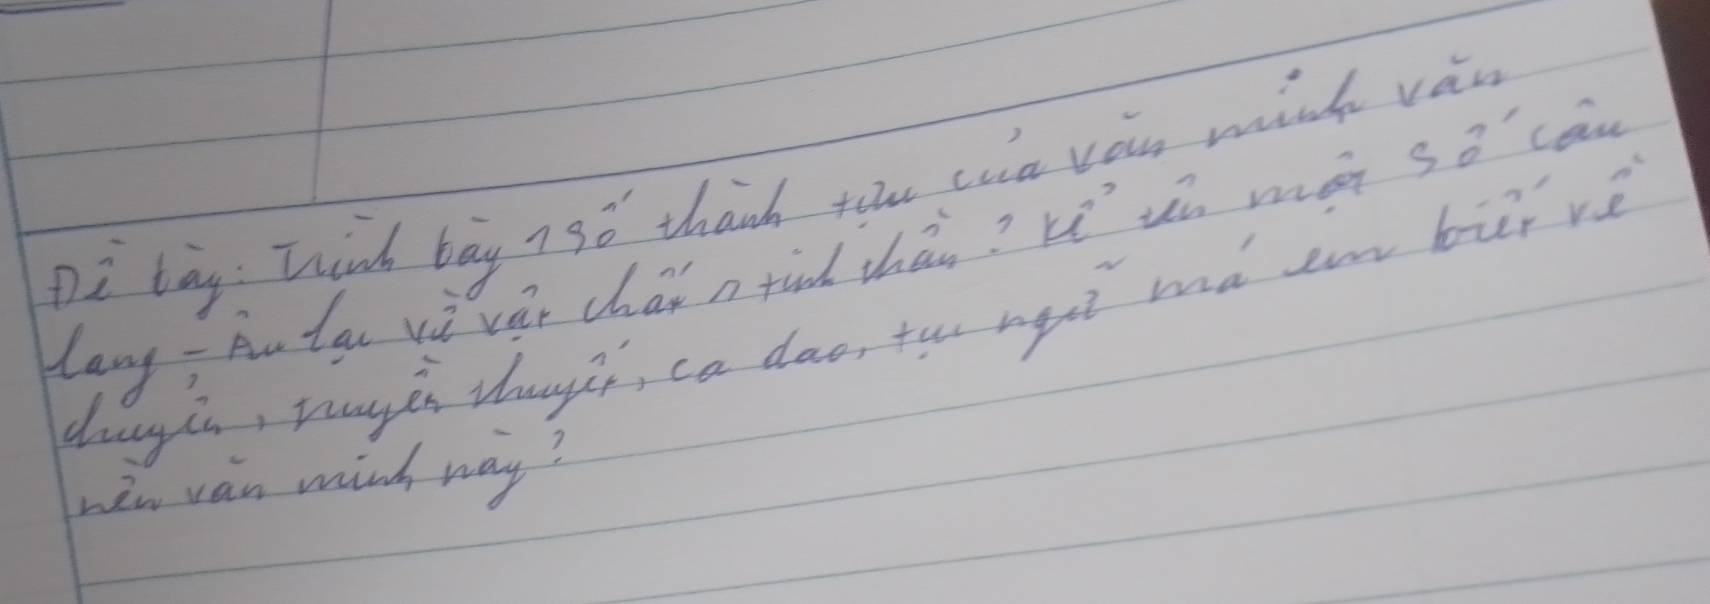 Đề bày: Trình bày 1 số thành tựu của văn minh văn
lang - Âu lạc về vật chất n tinh thần? Kể tên một số câu
chuyện, truyền thuyết, ca dao, tục ngữ mà em biết về
nền văn minh này?